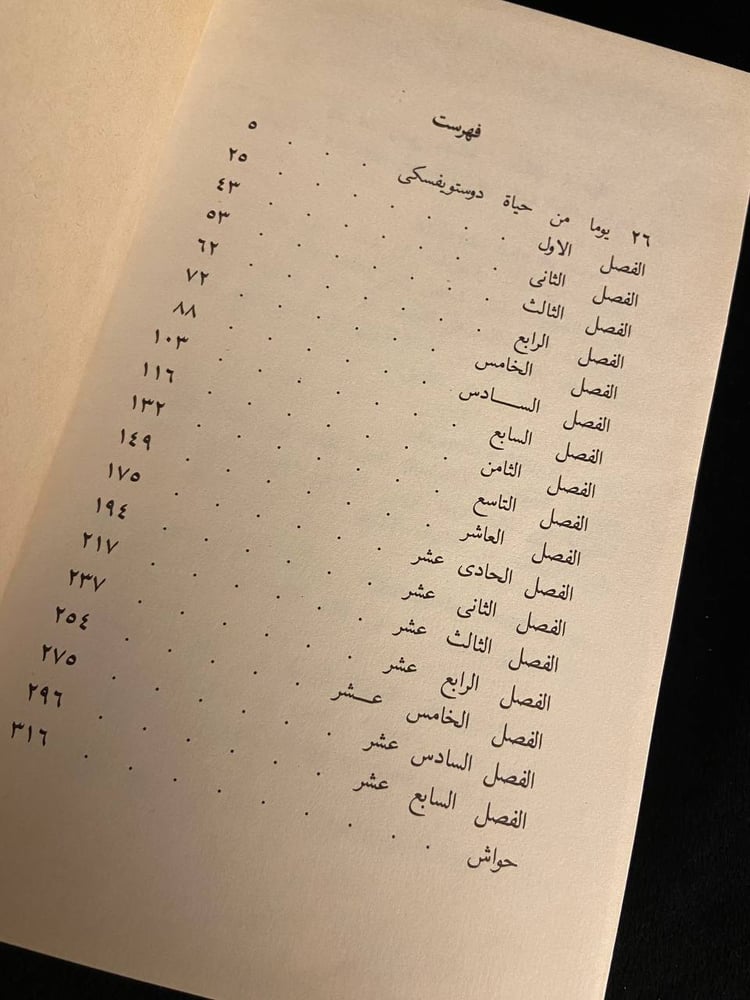 فهرست
٢٦ يوما من حياة دوستويفسكى . . . ٥
الفصل الاول . . . . . ٢٥
الفصل الثانى . . . . . ٤٣
الفصل الثالث . . . . . ٥٣
الفصل الرابع . . . . . ٦٢
الفصل الخامس . . . . . ٧٢
الفصل الســـادس . . . . . ٨٨
الفصل السابع . . . . . ١٠٣
الفصل الثامن . . . . . ١١٦
الفصل التاسع . . . . . ١٣٢
الفصل العاشر . . . . . ١٤٩
الفصل الحادى عشر . . . . . ١٧٥
الفصل الثانى عشر . . . . . ١٩٤
الفصل الثالث عشر . . . . . ٢١٧
الفصل الرابع عشر . . . . . ٢٣٧
الفصل الخامس عـــشر . . . . ٢٥٤
الفصل السادس عشر . . . . . ٢٧٥
الفصل السابع عشر . . . . . ٢٩٦
حواش . . . . . . ٣١٦